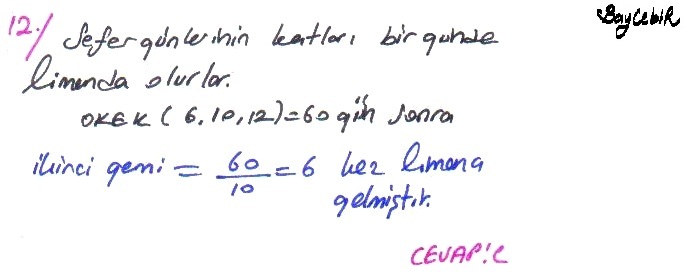 BayCebiR
12./ Sefer günlerinin katları bir günde
limanda olurlar.
OKEK (6, 10, 12) = 60 gün sonra
ikinci gemi = 60/10 = 6 kez limana
gelmiştir.
CEVAP: C